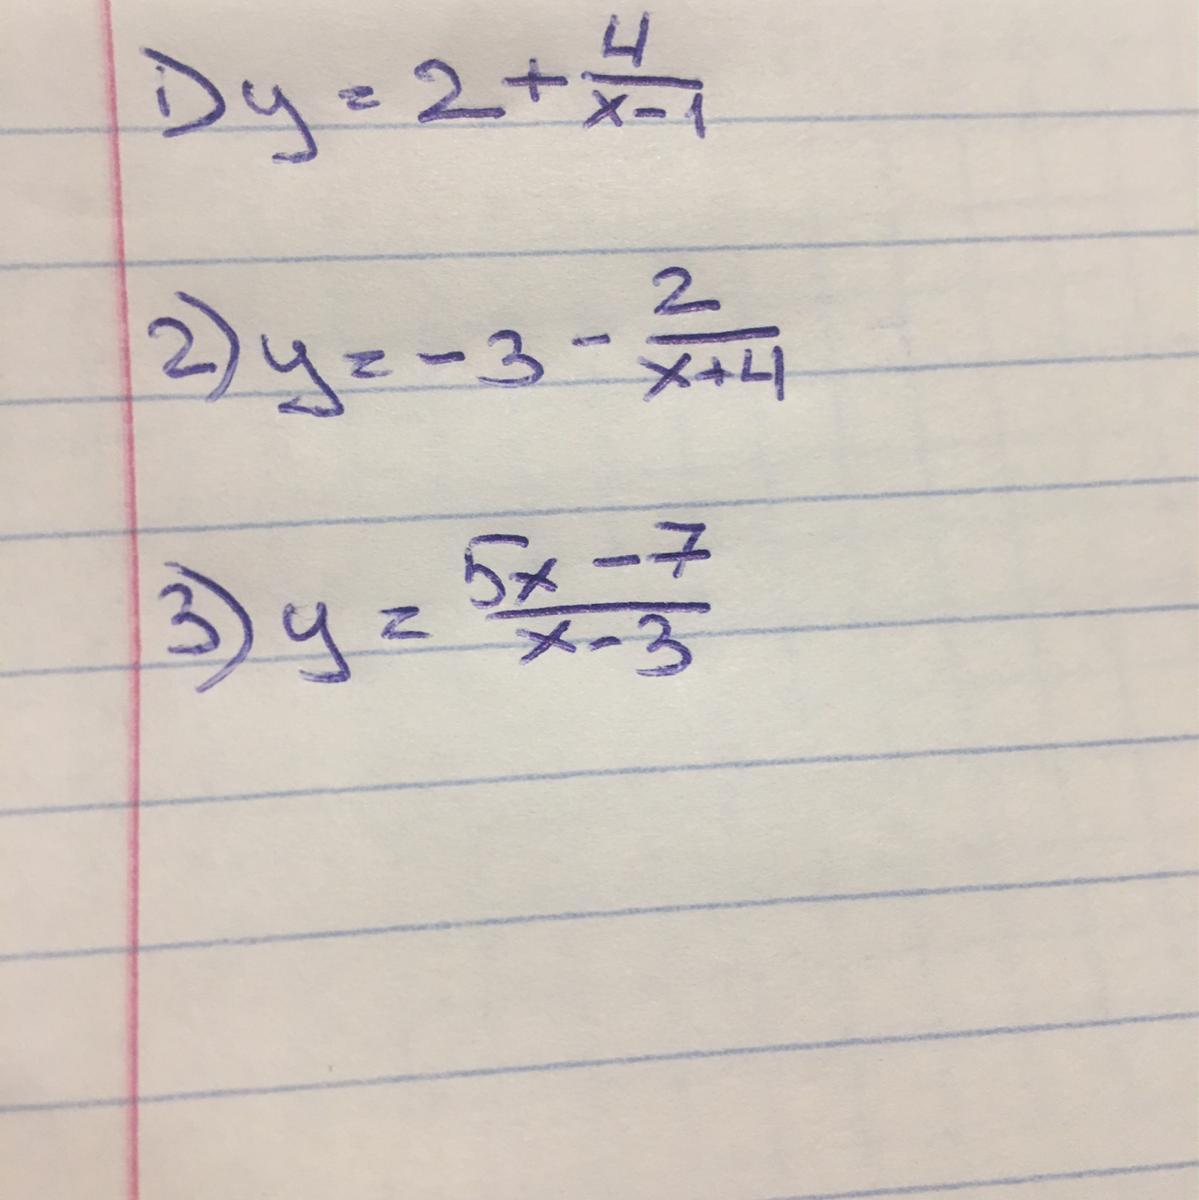 1) y = 2 + 4/(x-1)
2) y = -3 - 2/(x+4)
3) y = (5x-7)/(x-3)